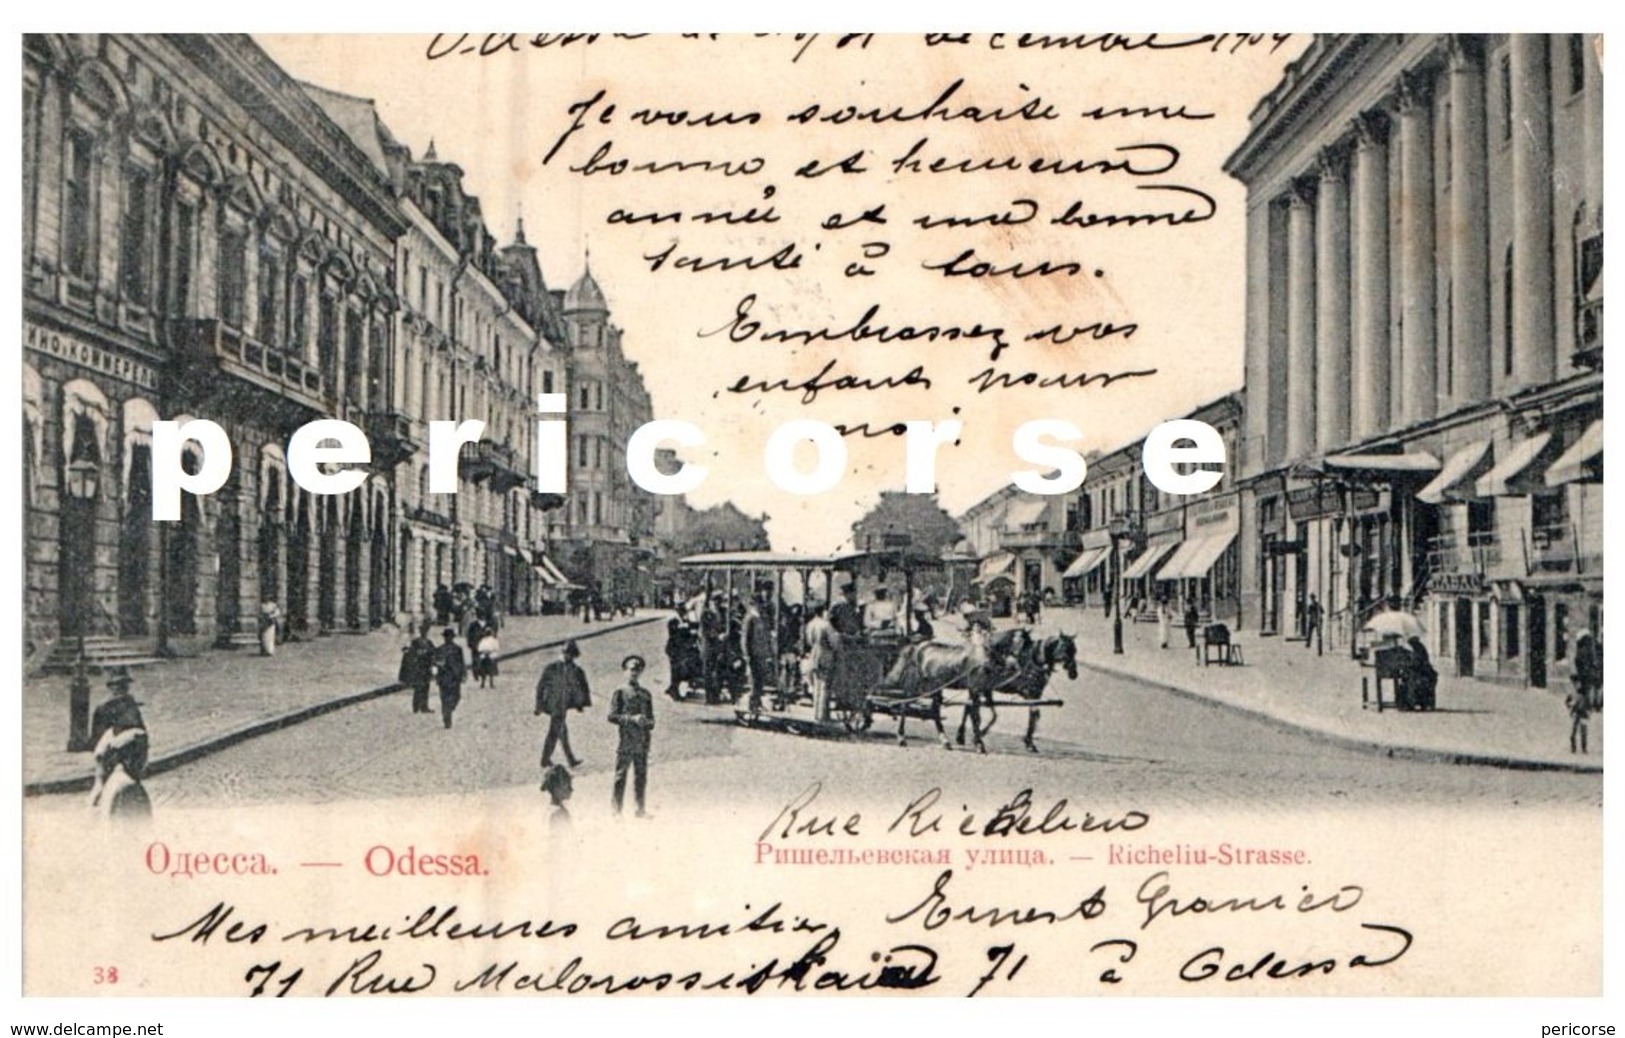 Odessa le décembre 1904
Je vous souhaite une
bonne et heureuse
année et une bonne
santé à tous.
Embrassez vos
enfants pour
moi
pericorse
ИНО КОММЕРЧ
ТАБАК
Rue Richelieu
Одесса. — Odessa.
Ришельевская улица. — Richeliu-Strasse.
Mes meilleures amitiés Ernest Granier
38
71 Rue Malorossiskaïa 71 à Odessa
www.delcampe.net
pericorse